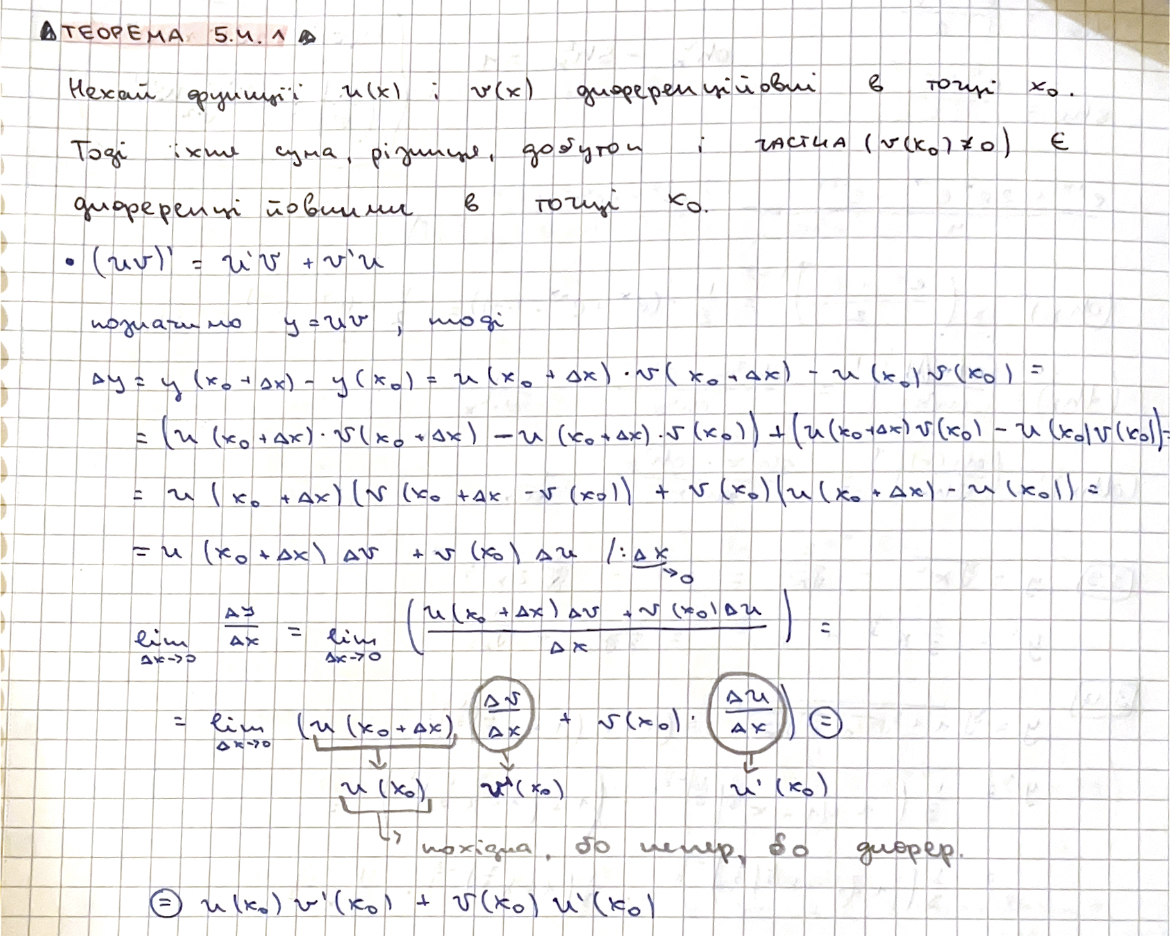 ТЕОРЕМА 5.4.1
Нехай функції u(x) і v(x) диференційовні в точці x₀.
Тоді їхня сума, різниця, добуток і частка (v(x₀) ≠ 0) є
диференційовними в точці x₀.
• (uv)' = u'v + v'u
позначимо y = uv, тоді
Δy = y(x₀ + Δx) - y(x₀) = u(x₀ + Δx) · v(x₀ + Δx) - u(x₀) v(x₀) =
= (u(x₀ + Δx) · v(x₀ + Δx) - u(x₀ + Δx) · v(x₀)) + (u(x₀ + Δx) v(x₀) - u(x₀) v(x₀)) =
= u(x₀ + Δx)(v(x₀ + Δx - v(x₀)) + v(x₀)(u(x₀ + Δx) - u(x₀)) =
= u(x₀ + Δx) Δv + v(x₀) Δu /: Δx → 0
lim Δx→0 Δy/Δx = lim Δx→0 ((u(x₀ + Δx) Δv + v(x₀) Δu)/Δx) =
= lim Δx→0 (u(x₀ + Δx) Δv/Δx + v(x₀) · Δu/Δx) =
u(x₀) v'(x₀) u'(x₀)
похідна, бо непер, бо дифер.
= u(x₀) v'(x₀) + v(x₀) u'(x₀)